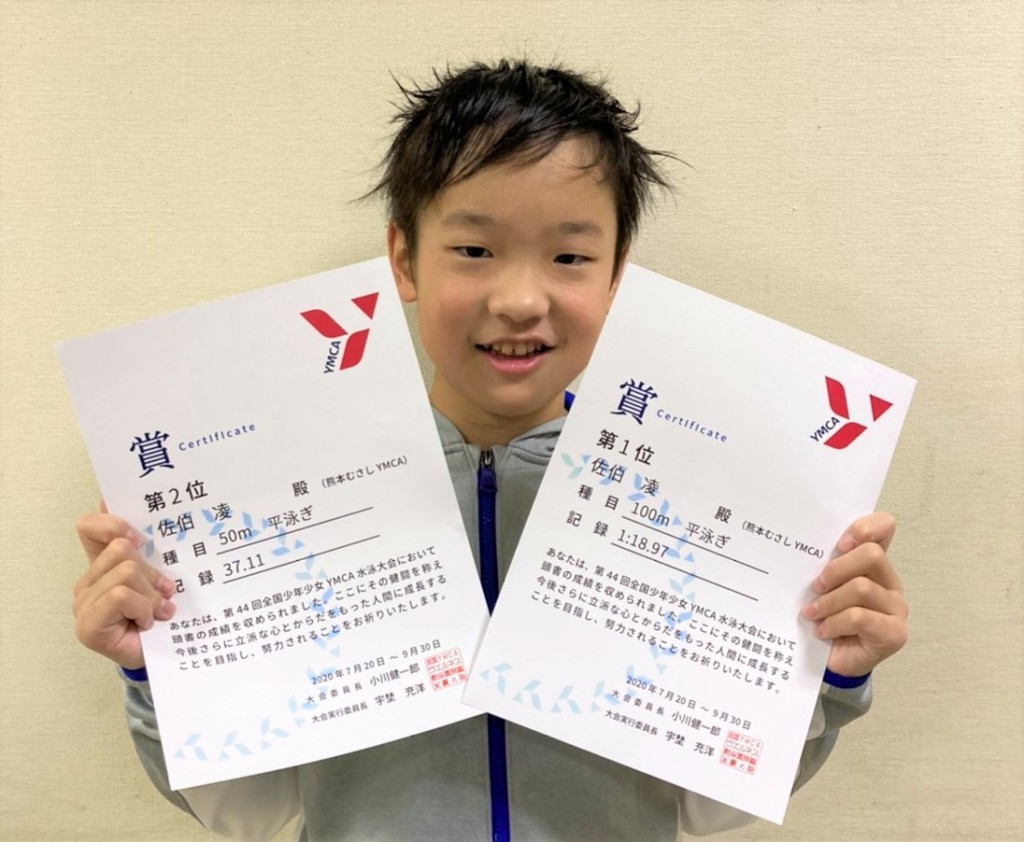 YMCA
賞 Certificate
第2位
佐伯 凌 殿 (熊本むさしYMCA)
種目 50m 平泳ぎ
記録 37.11
あなたは、第44回全国少年少女YMCA水泳大会において
頭書の成績を収められました。ここにその健闘を称え
今後さらに立派な心とからだをもった人間に成長する
ことを目指し、努力されることをお祈りいたします。
2020年7月20日 ～ 9月30日
大会委員長 小川健一郎
大会実行委員長 宇埜 充洋
YMCA
賞 Certificate
第1位
佐伯 凌 殿 (熊本むさしYMCA)
種目 100m 平泳ぎ
記録 1:18.97
あなたは、第44回全国少年少女YMCA水泳大会において
頭書の成績を収められました。ここにその健闘を称え
今後さらに立派な心とからだをもった人間に成長する
ことを目指し、努力されることをお祈りいたします。
2020年7月20日 ～ 9月30日
大会委員長 小川健一郎
大会実行委員長 宇埜 充洋